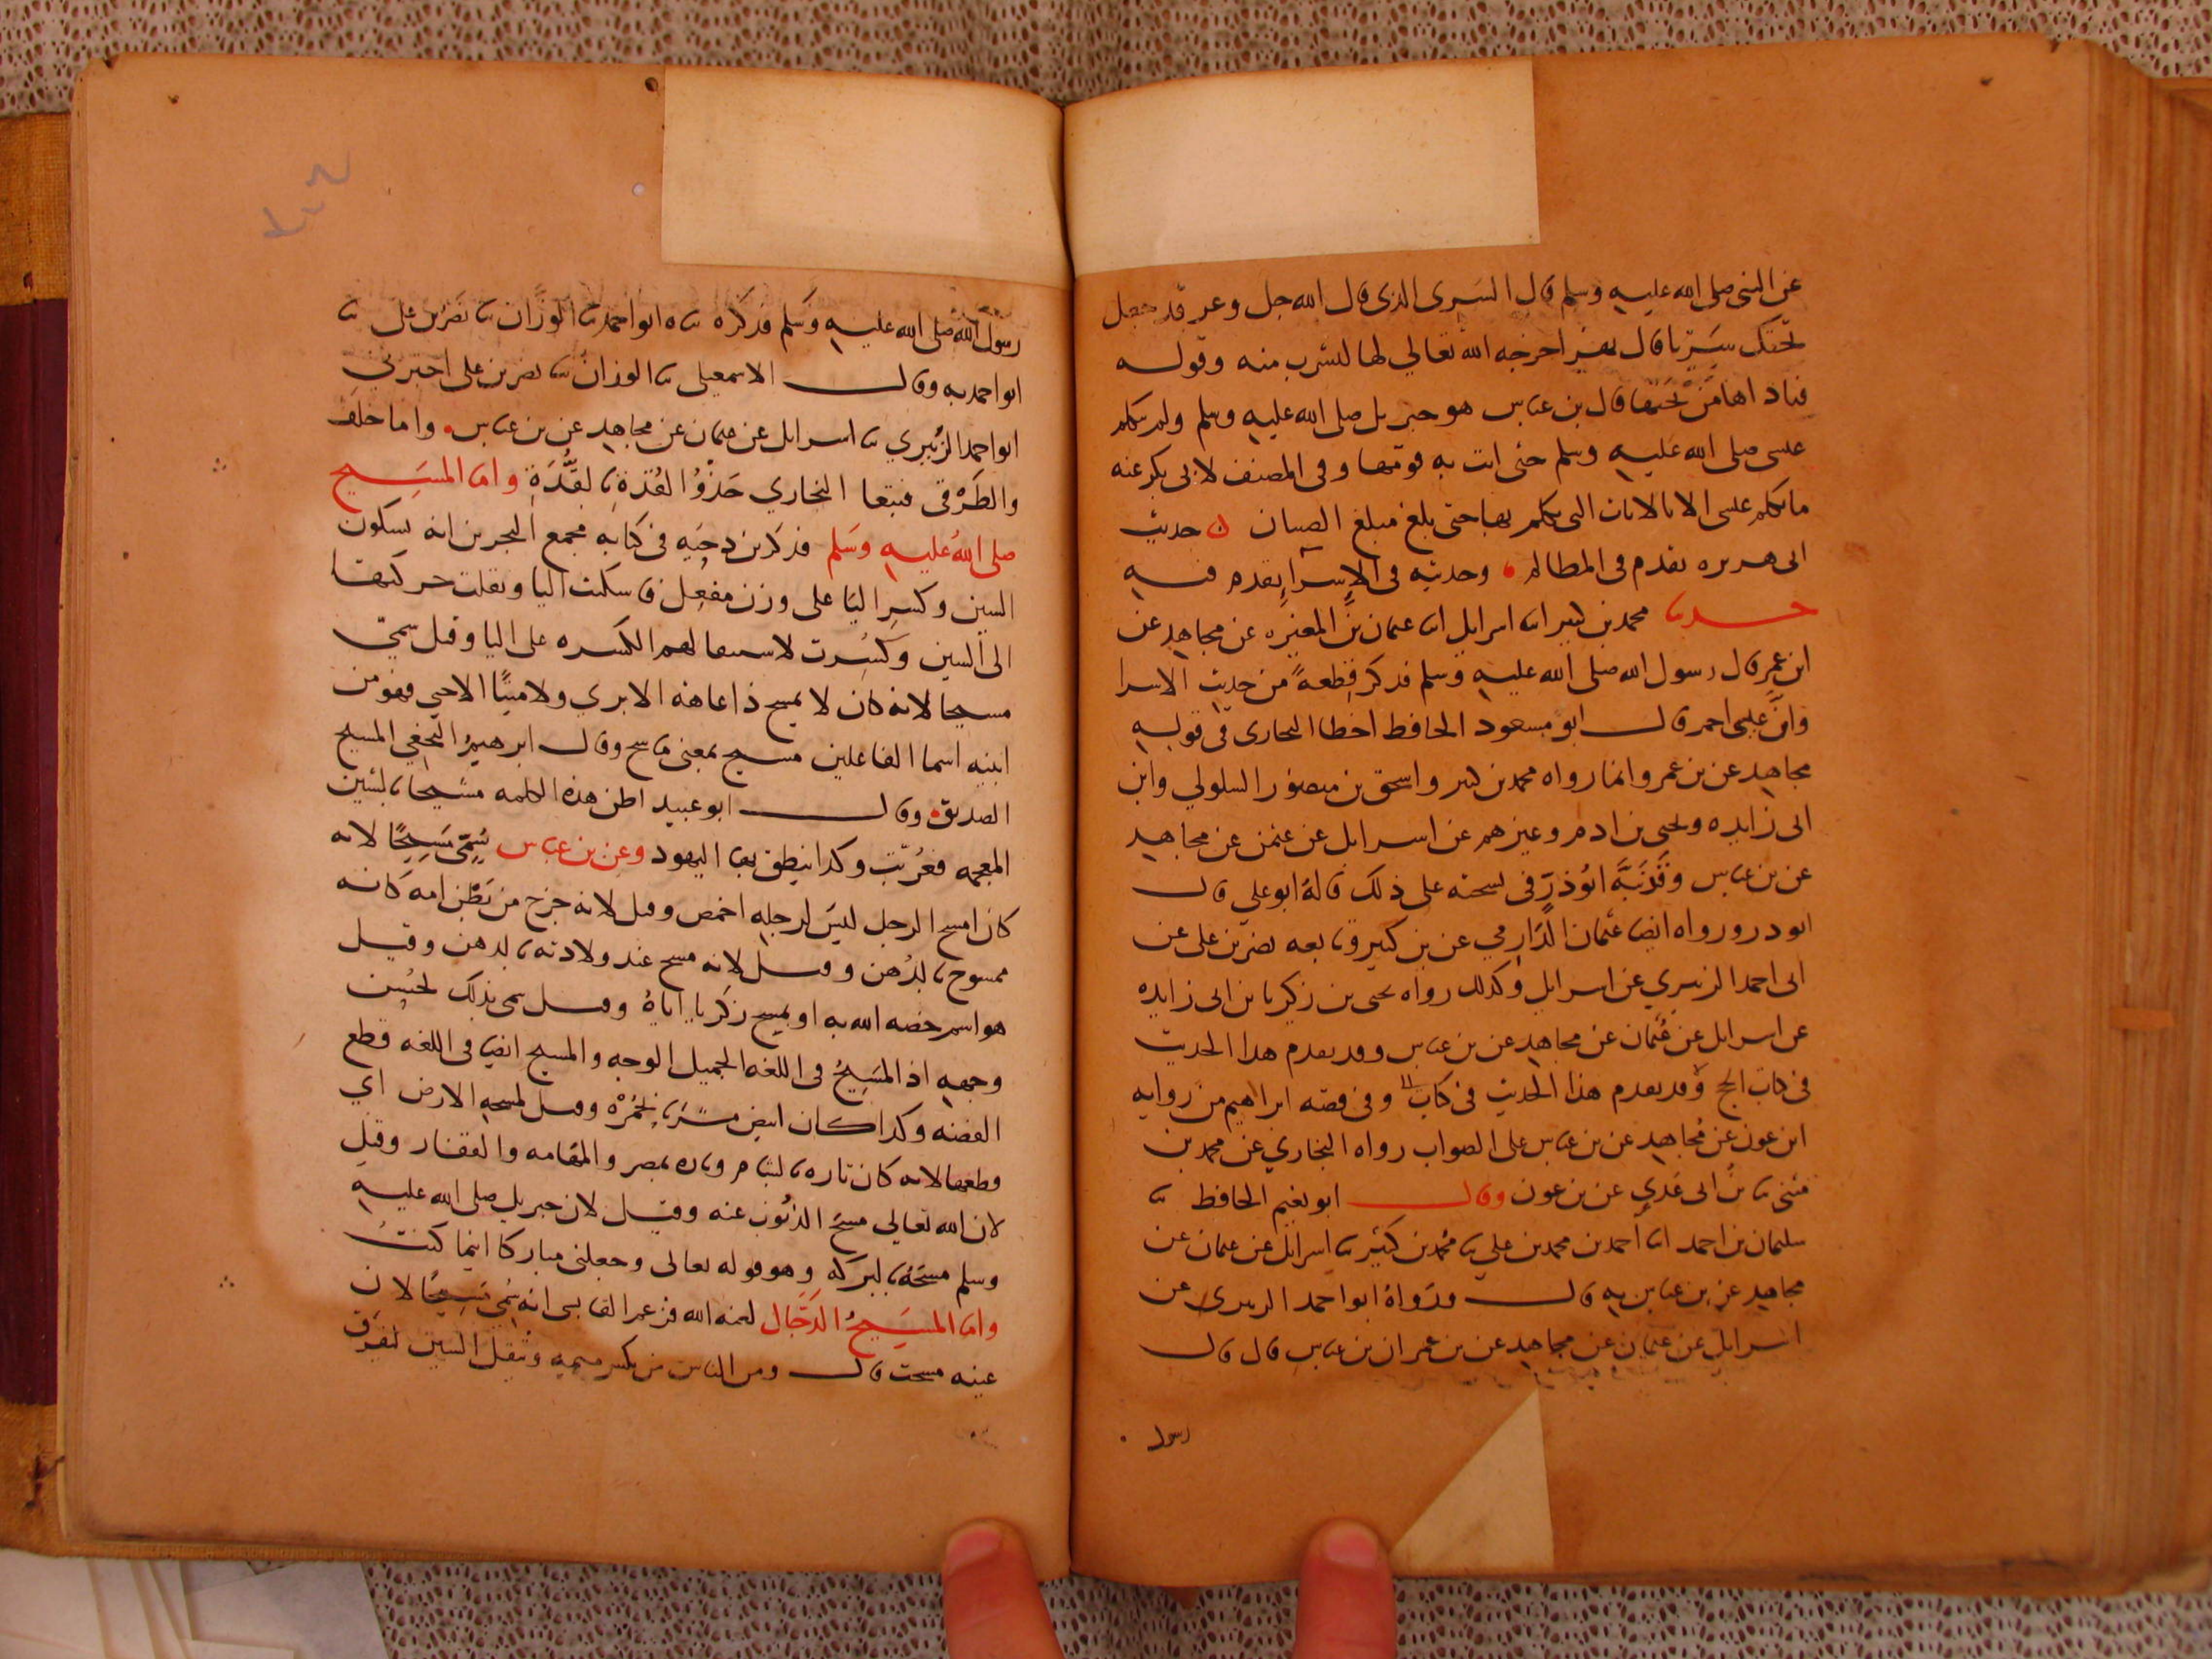 عن النبى صلى الله عليه وسلم قال السَرِى الذى قال الله جل وعز قد جعل
تحتك سَرِيّا قال نهر اخرجه الله تعالي لها لتشرب منه وقوله
فناداها مَنْ تَحتها قال بن عباس هو جبريل صلى الله عليه وسلم ولم يتكلم
عيسى صلى الله عليه وسلم حتى اتت به قومها وفى المصنف لابى بكر عنه
ما تكلم عيسى الا بالايات التى تكلم بها حتى بلغ مبلغ الصبيان ن حديث
ابى هريره تقدم فى المظالم وحديثه فى الاسرا يقدم فيه
حدثنا محمد بن كثير انا اسرايل انا عثمان بن المغيره عن مجاهد عن
ابن عمر قال رسول الله صلى الله عليه وسلم فذكر قطعةً من حديث الاسرا
قال ابو مسعود الحافظ اخطا البخارى فى قوله
مجاهد عن بن عمر وانما رواه محمد بن كثير واسحق بن منصور السلولي وابن
ابى زايده ويحيى بن ادم وغيرهم عن اسرايل عن عثمن عن مجاهد
عن بن عباس وقد نبَّه ابُو ذرٍّ فى نسخته على ذلك قاله ابو علي قال
ابو ذر ورواه ايضا عثمان الدَارِمي عن بن كثير وتابعه نضر بن على عن
ابى احمد الزبيري عن اسرايل وكذلك رواه يحيى بن زكريا بن ابى زايده
عن اسرايل عن عُثمان عن مجاهد عن بن عباس وقد تقدم هذا الحديث
فى كتاب الحج وقد تقدم هذا الحديث فى كتاب وفى قصه ابراهيم من روايه
ابن عون عن مُجاهد عن بن عباس على الصواب رواه البخاري عن محمد بن
مثنى ثنا بن ابى عَدِي عن بن عون وقال ابو نعيم الحافظ ثنا
سليمان بن احمد انا احمد بن محمد بن علي ثنا مُحمد بن كثير ثنا اسرايل عن عثمان عن
مجاهد عن بن عباس به قال ورَواهُ ابو احمد الزبيرى عن
اسرايل عن عثمان عن مجاهد عن بن عمر ان بن عباس قال قال
رسول
رسول الله صلى الله عليه وَسَلم فذكرَه ثناه ابو احمد ثنا الوزَّان ثنا نَصْر بن على ثنا
ابو احمد به وقال الاسمعيلى ثنا الوزان ثنا نصر بن على اخبرنى
ابو احمد الزُبيري ثنا اسرايل عن عثمان عن مجاهد عن بن عباس واما خلَف
والطَرْقى فتبعا البخاري حَذْوُ القُذة بالقُذَّةِ واما المسَيح
صلى اللهُ عليه وَسَلم فذكر بن دحيَه فى كتابه مجمع البحرين انه بسكون
السين وكسرِ اليَا على وزن مفعِل فاسكنت اليا ونقلت حركتها
الى السين وَكسُرت لاستثقالهم الكسره على اليا وقيل سمى
مسيحا لانه كان لا يمسح ذا عاهه الا بري ولا ميتًا الا حيي فهو من
ابنيه اسما الفاعلين مسيح بمعنى ماسح وقال ابرهيمُ النخعي المسيح
الصديق وقال ابو عبيد اظن هذه الكلمه مشيحا بالشين
المعجمه فعُربّت وكذا ينطق بها اليهود وعن بن عباس سُمِّى مَسِيحًا لانه
كان امسح الرجل ليسَ لرجله اخمص وقيل لانه خرج من بَطْن امه كانه
ممسوح بالدُهن وقيل لانه مسح عند ولادته بالدهن وقيل
هو اسم خصه الله به او لمسح زكريا اياهُ وقيل سمى بذلك لحُسن
وجهه اذ المسَيحُ فى اللغه الجميل الوجه والمسيح ايضا فى اللغه قطع
الفضه وكذا كان ابيض مشَرَبا بحُمْرَه وقيل لمسحه الارض اي
قطعها لانه كان تاره بالشام وتاره بمصر والمهامه والقفار وقيل
لان الله تعالي مسحَ الذنُوب عنه وقيل لان جبريل صلى الله عليه
وسلم مسَحَهُ بالبركه وهو قوله تعالى وجعلنى مباركا اينما كنتُ
واما المسَيحُ الدَّجال لعنه الله فزعم القابسى انه سُمِّى مَسيحًا لان
عينه مسحت قال ومن الناس من يكسر ميمه ويُثقل السين لتفرق